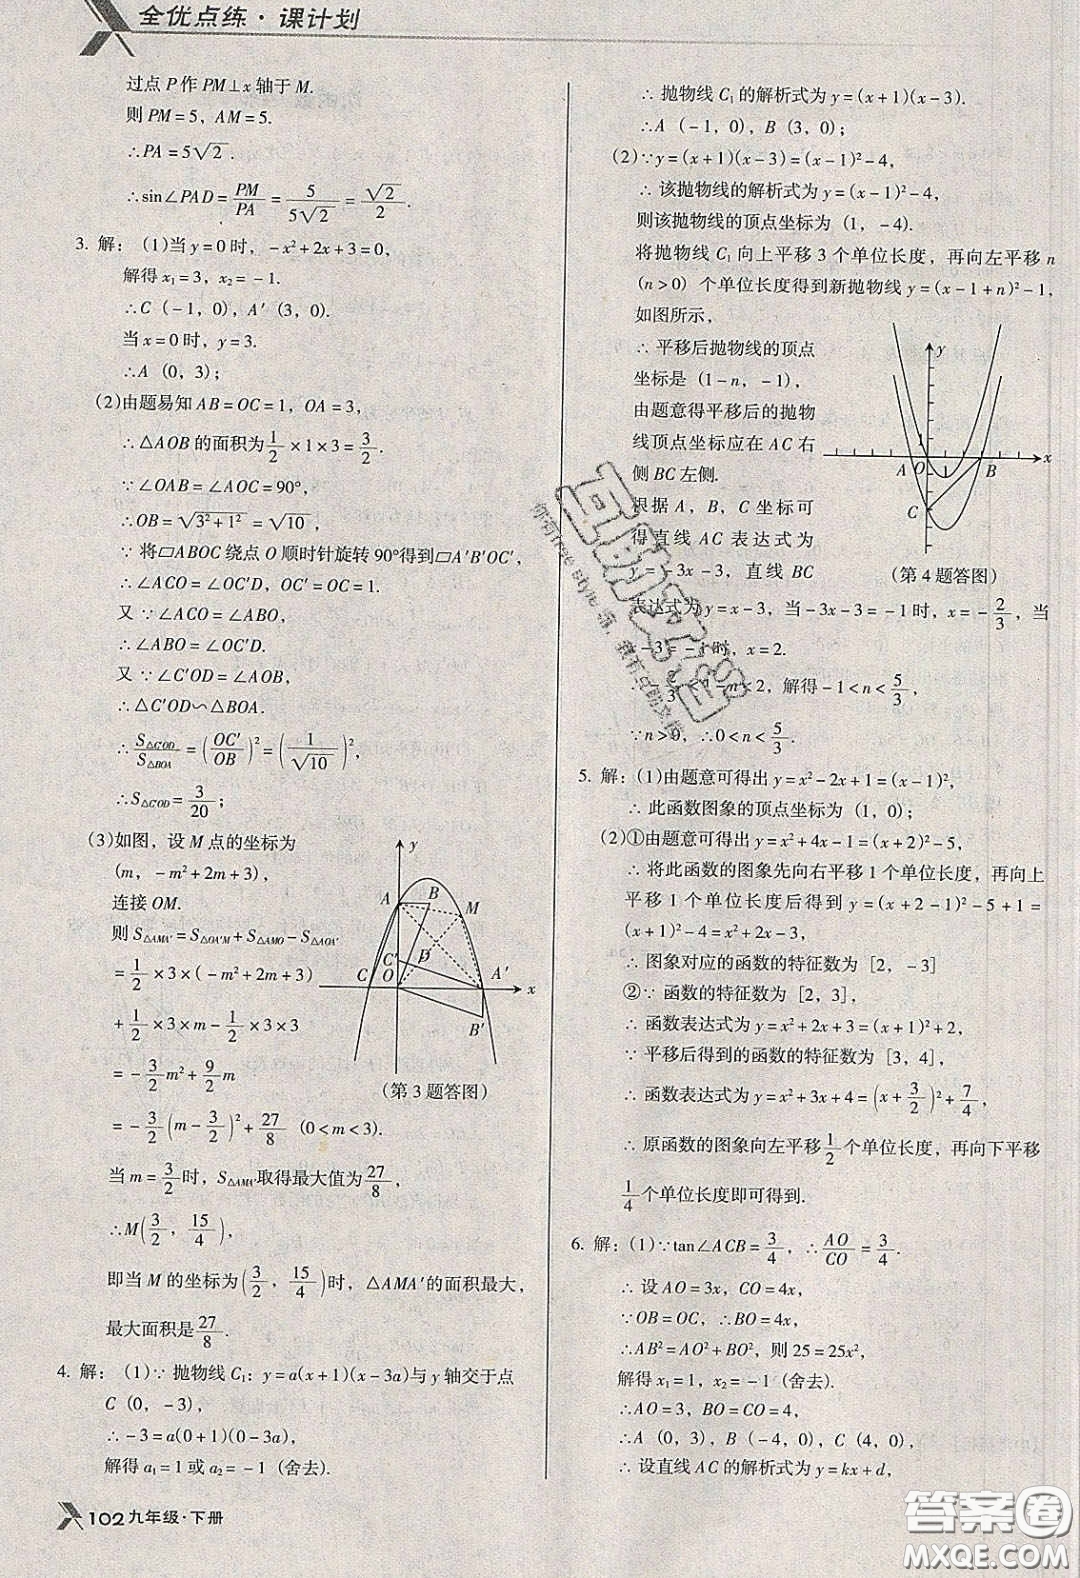 全优点练·课计划
过点P作PM⊥x轴于M.
则PM=5，AM=5.
∴PA=5√2.
∴sin∠PAD=PM/PA=5/(5√2)=√2/2.
3. 解：(1)当y=0时，-x²+2x+3=0，
解得x₁=3，x₂=-1.
∴C（-1，0），A′（3，0）.
当x=0时，y=3.
∴A（0，3）；
(2)由题易知AB=OC=1，OA=3，
∴△AOB的面积为1/2×1×3=3/2.
∵∠OAB=∠OAC=90°，
∴OB=√(3²+1²)=√10，
∵将▱ABOC绕点O顺时针旋转90°得到▱A′B′OC′，
∴∠ACO=∠OC′D，OC′=OC=1.
又∵∠ACO=∠ABO，
∴∠ABO=∠OC′D.
又∵∠C′OD=∠AOB，
∴△C′OD∽△BOA.
∴S△C′OD/S△BOA=(OC′/OB)²=(1/√10)²，
∴S△C′OD=3/20；
(3)如图，设M点的坐标为
(m，-m²+2m+3)，
连接OM.
则S△AMA′=S△OA′M+S△AMO-S△AOA′
=1/2×3×(-m²+2m+3)
+1/2×3×m-1/2×3×3
=-3/2m²+9/2m
=-3/2(m-3/2)²+27/8（0<m<3）.
当m=3/2时，S△AMA′取得最大值为27/8，
∴M(3/2，15/4)，
即当M的坐标为(3/2，15/4)时，△AMA′的面积最大，
最大面积是27/8.
y
A
B
M
C′
D
C
O
A′
x
B′
(第3题答图)
4. 解：(1)∵抛物线C₁：y=a(x+1)(x-3a)与y轴交于点
C（0，-3），
∴-3=a(0+1)(0-3a)，
解得a₁=1或a₂=-1（舍去）.
∴抛物线C₁的解析式为y=(x+1)(x-3).
∴A（-1，0），B（3，0）；
(2)∵y=(x+1)(x-3)=(x-1)²-4，
∴该抛物线的解析式为y=(x-1)²-4，
则该抛物线的顶点坐标为（1，-4）.
将抛物线C₁向上平移3个单位长度，再向左平移n
（n>0）个单位长度得到新抛物线y=(x-1+n)²-1，
如图所示，
∴平移后抛物线的顶点
坐标是（1-n，-1），
由题意得平移后的抛物
线顶点坐标应在AC右
侧BC左侧.
根据A，B，C坐标可
得直线AC表达式为
y=-3x-3，直线BC
表达式为y=x-3，当-3x-3=-1时，x=-2/3，当
x-3=-1时，x=2.
∴-2/3<1-n<2，解得-1<n<5/3，
∵n>0，∴0<n<5/3.
y
1
A
O
B
x
C
(第4题答图)
5. 解：(1)由题意可得出y=x²-2x+1=(x-1)²，
∴此函数图象的顶点坐标为（1，0）；
(2)①由题意可得出y=x²+4x-1=(x+2)²-5，
∴将此函数的图象先向右平移1个单位长度，再向上
平移1个单位长度后得到y=(x+2-1)²-5+1=
(x+1)²-4=x²+2x-3，
∴图象对应的函数的特征数为［2，-3］
②∵函数的特征数为［2，3］，
∴函数表达式为y=x²+2x+3=(x+1)²+2，
∵平移后得到的函数的特征数为［3，4］，
∴函数表达式为y=x²+3x+4=(x+3/2)²+7/4，
∴原函数的图象向左平移1/2个单位长度，再向下平移
1/4个单位长度即可得到.
6. 解：(1)∵tan∠ACB=3/4，∴AO/CO=3/4.
∴设AO=3x，CO=4x，
∵OB=OC，∴BO=4x.
∴AB²=AO²+BO²，则25=25x²，
解得x₁=1，x₂=-1（舍去）.
∴AO=3，BO=CO=4，
∴A（0，3），B（-4，0），C（4，0），
∴设直线AC的解析式为y=kx+d，
102九年级·下册
答案圈
MXQE.COM